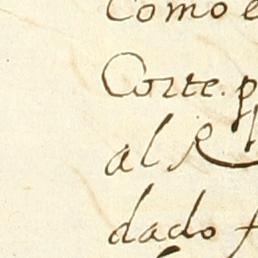 Como e
Corte. p
al R
dado